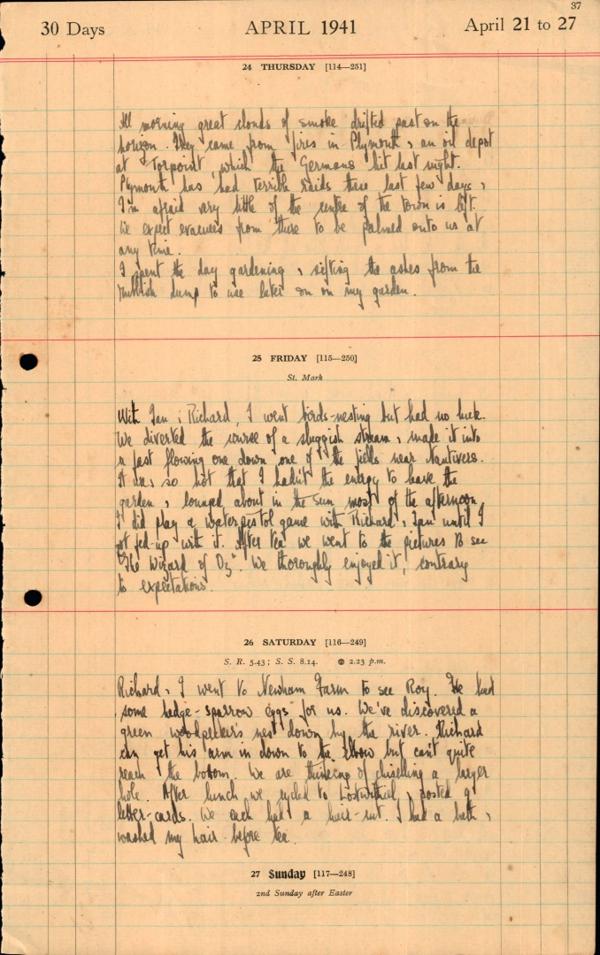 37
30 Days APRIL 1941 April 21 to 27
24 THURSDAY [114—251]
All morning great clouds of smoke drifted past on the
horizon. They came from fires in Plymouth & an oil depot
at Torpoint which the Germans hit last night.
Plymouth has had terrible raids these last few days &
I'm afraid very little of the centre of the town is left.
We expect evacuees from there to be palmed onto us at
any time.
I spent the day gardening & sifting the ashes from the
rubbish dump to use later on on my garden.
25 FRIDAY [115—250]
St. Mark
With Ian & Richard, I went birds-nesting but had no luck.
We diverted the course of a sluggish stream & made it into
a fast flowing one down one of the fields near Nantivers.
It was so hot that I hadn't the energy to leave the
garden & lounged about in the sun most of the afternoon.
I did play a waterpistol game with Richard & Ian until I
got fed-up with it. After tea we went to the pictures to see
"The Wizard of Oz". We thoroughly enjoyed it, contrary
to expectations.
26 SATURDAY [116—249]
S. R. 5.43; S. S. 8.14. 2.23 p.m.
Richard & I went to Newham Farm to see Roy. He had
some hedge-sparrow eggs for us. We've discovered a
green woodpecker's nest down by the river. Richard
can get his arm in down to the elbow but can't quite
reach the bottom. We are thinking of chiselling a larger
hole. After lunch we cycled to Lostwithiel & posted 9
letter-cards. We each had a hair-cut. I had a bath &
washed my hair before tea.
27 Sunday [117—248]
2nd Sunday after Easter